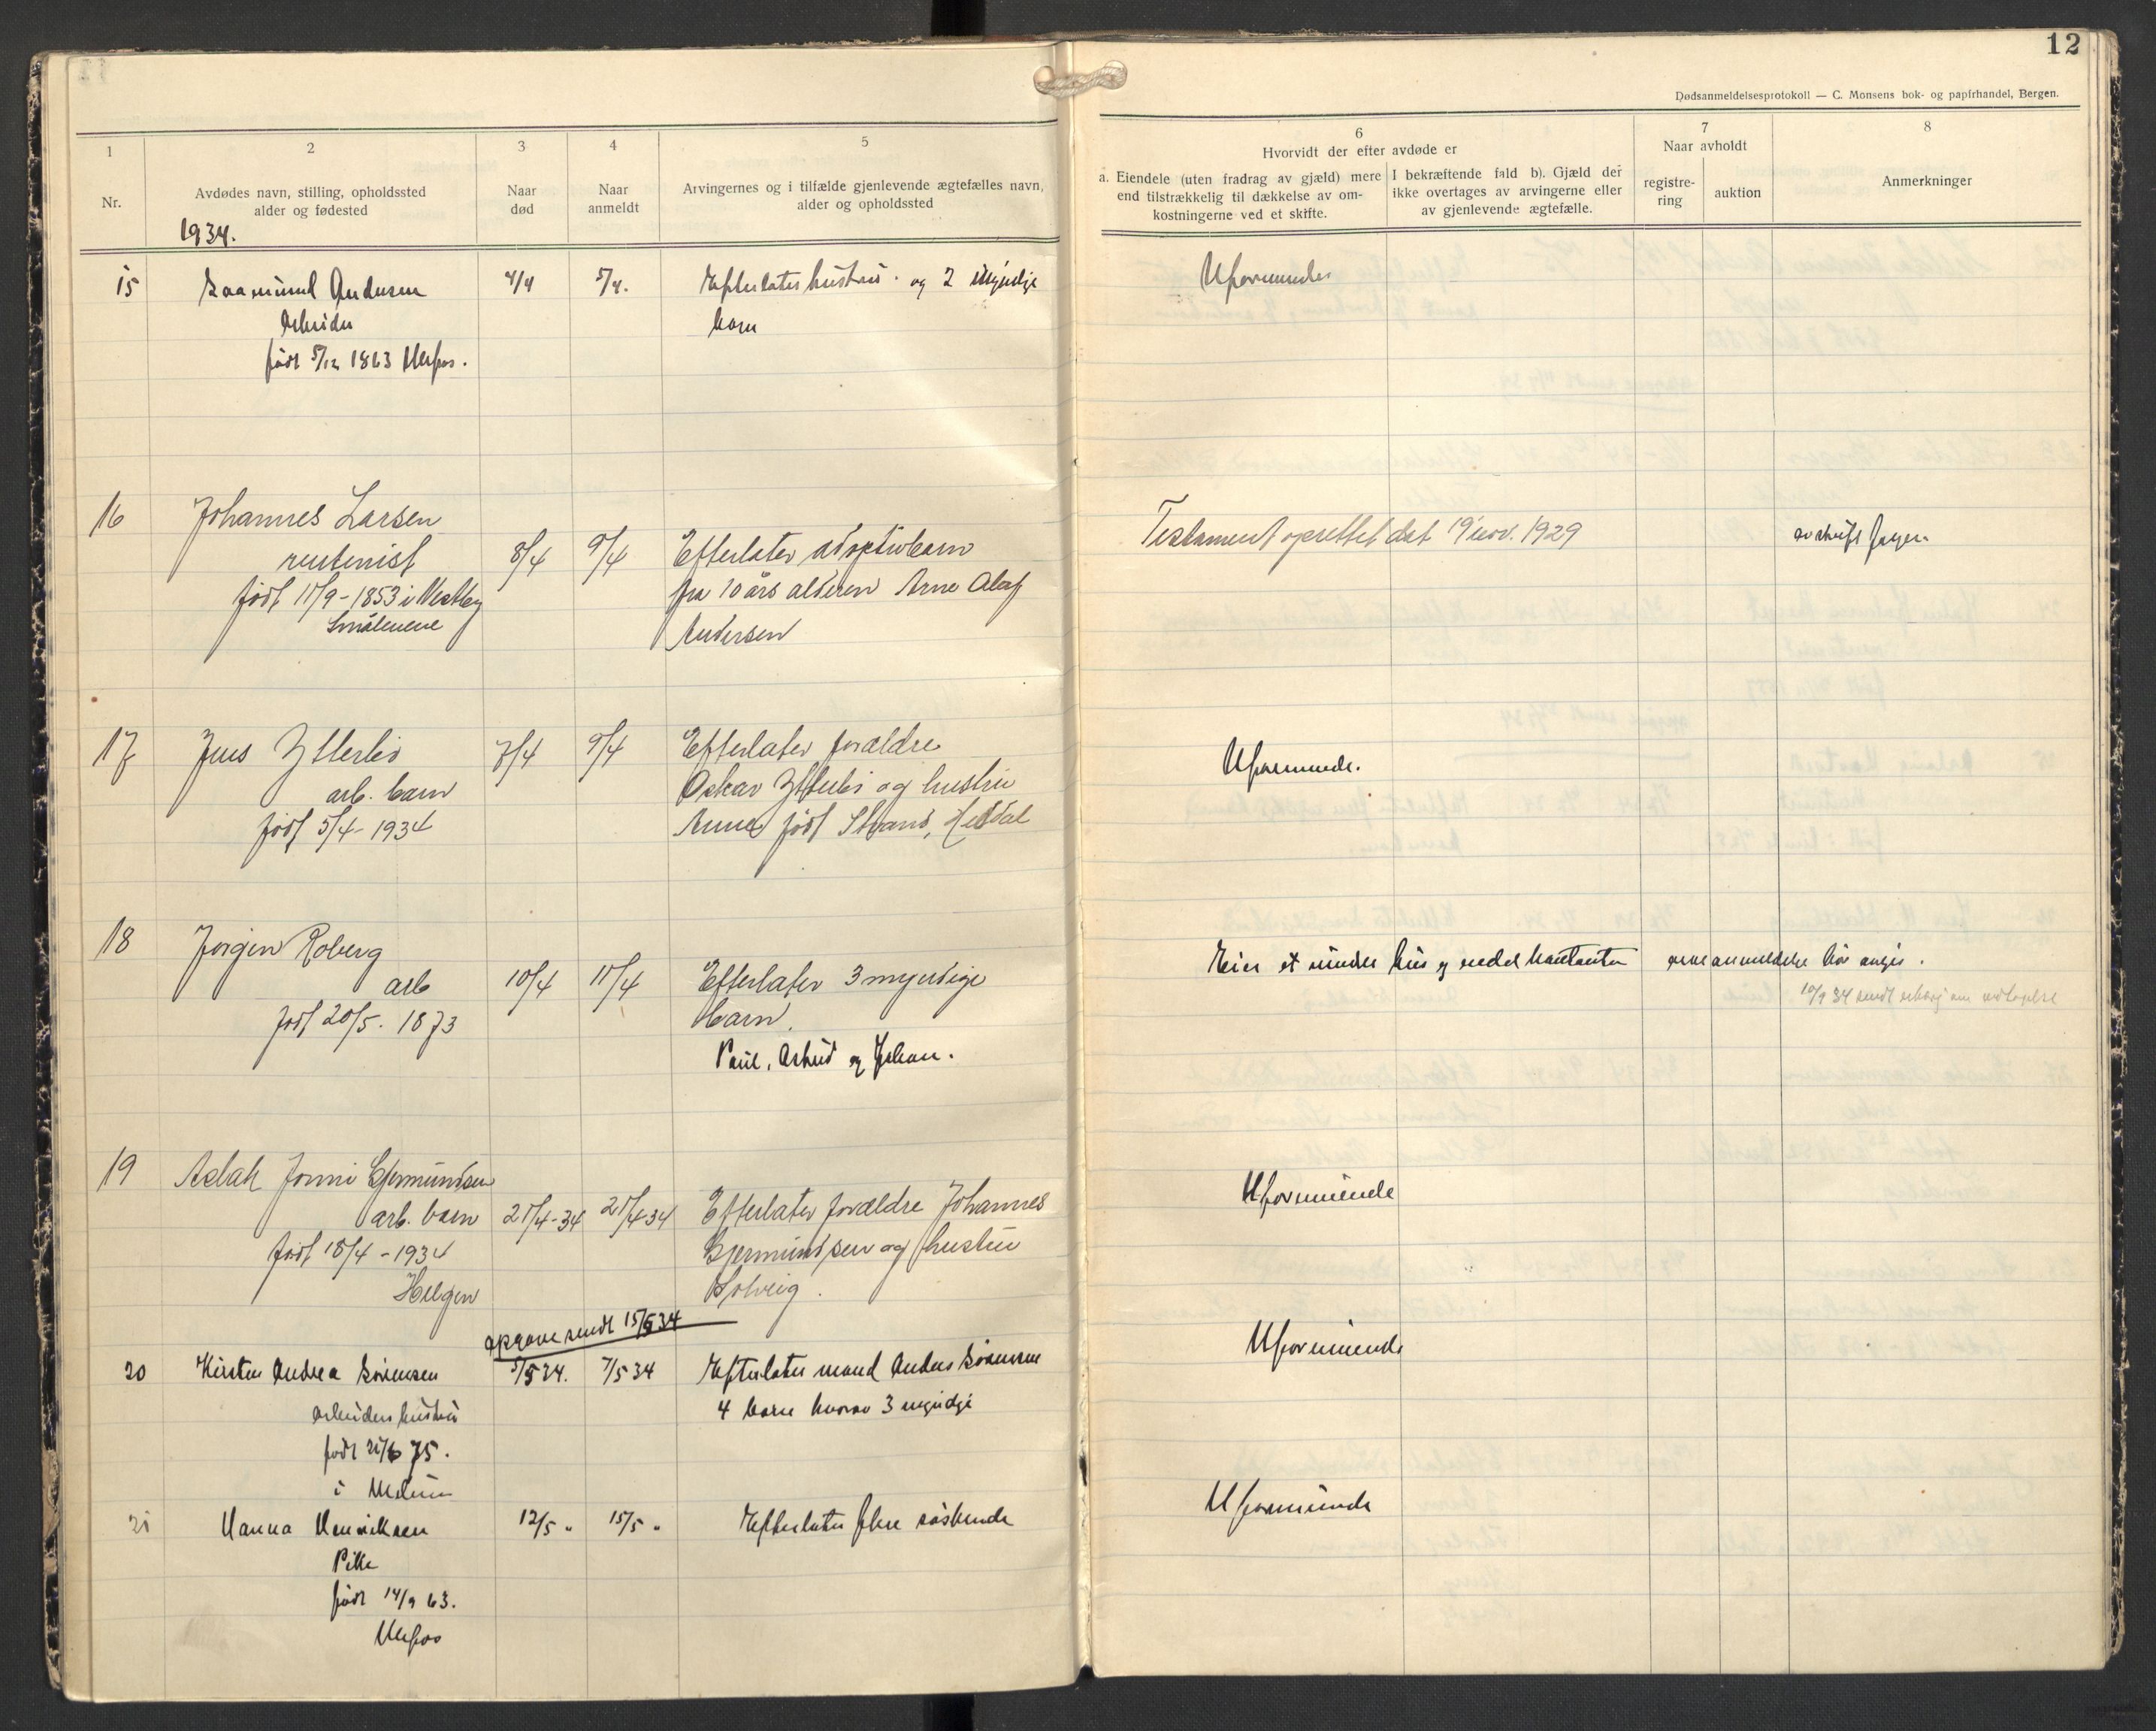 12
Dødsanmeldelsesprotokoll — C. Monsens bok- og papirhandel, Bergen.
1
2
3
4
5
6
7
8
Nr.
Avdødes navn, stilling, opholdssted
alder og fødested
Naar
død
Naar
anmeldt
Arvingernes og i tilfælde gjenlevende ægtefælles navn,
alder og opholdssted
Hvorvidt der efter avdøde er
a. Eiendele (uten fradrag av gjæld) mere
end tilstrækkelig til dækkelse av om-
kostningerne ved et skifte.
I bekræftende fald b). Gjæld der
ikke overtages av arvingerne eller
av gjenlevende ægtefælle.
Naar avholdt
registre-
ring
auktion
Anmerkninger
1934.
15 Andersen 4/4 5/4. Efterlater hustru og 2 myndige Uformuende
Arbeider barn
født 5/12 1863 Ulefos.
16 Johannes Larsen
rentenist 8/4 9/4 Efterlater adoptivbarn Testament oprettet dat 19 nov. 1929
født 11/9 - 1853 i Vestby fra 10 års alderen Arne Olaf
Smålenene Andersen
17 Jens Ytterbø 7/4 9/4 Efterlater forældre Uformuende.
arb. barn Oskar Ytterbø og hustru
født 5/4 - 1934 Anna født Strand, Heddal
18 Jørgen Roberg Eier et mindre hus og endel kontanter
arb 10/4 11/4 Efterlater 3 myndige
født 20/5. 1873 barn.
Paul, Astrid og Johan.
19 Aslak Jonni Gjermundsen Uformuende
arb. barn 21/4-34 21/4-34 Efterlater forældre Johannes
født 18/4 - 1934 Gjermundsen og hustru
Helgen Solveig.
opgave sendt 15/5 34
20 Kirsten Andrea Sørensen 5/5 34. 7/5 34 Efterlater mand Anders Sørensen Uformuende
arbeiders hustru 4 barn hvorav 3 myndige
født 21/6 75.
i
21 Hanna Henriksen 12/5 " 15/5 " Efterlater flere søskende Uformuende
Pike
født 14/9 63.
Ulefos